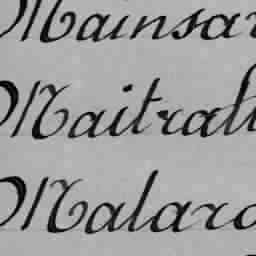 Mainsar
Maitral
Malard